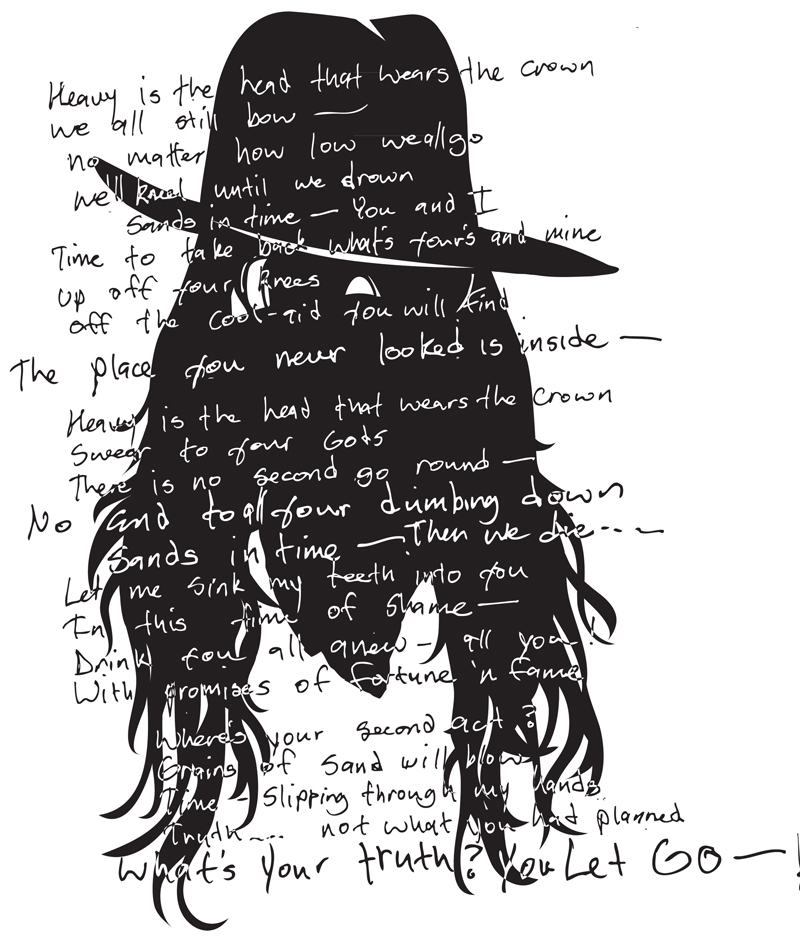 Heavy is the head that wears the crown
we all still bow —
no matter how low we all go
we'll kneel until we drown
Sands in time — You and I
Time to take back what's your's and mine
up off your knees
off the cool-aid you will find
The place you never looked is inside —
Heavy is the head that wears the crown
Swear to your Gods
There is no second go round —
No end to all your dumbing down
Sands in time — Then we die--- —
Let me sink my teeth into you
In this time of shame —
Drink you all anew - all you - !
With promises of fortune 'n fame
Where's your second act?
Grains of Sand will blow
Time - Slipping through my hands
Truth --- not what you had planned
What's your truth? You Let Go — !